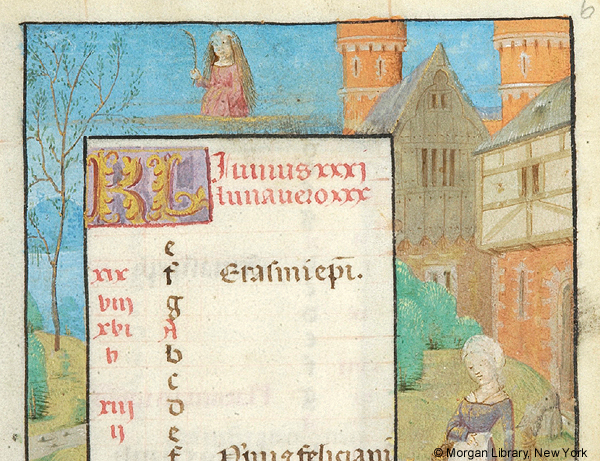 6
KL Iunius xxxi
luna uero xxx
e
xix f Erasmi ep̄i.
viij g
xvi A
v b
c
xiij d
ij e
f feliciani
© Morgan Library, New York